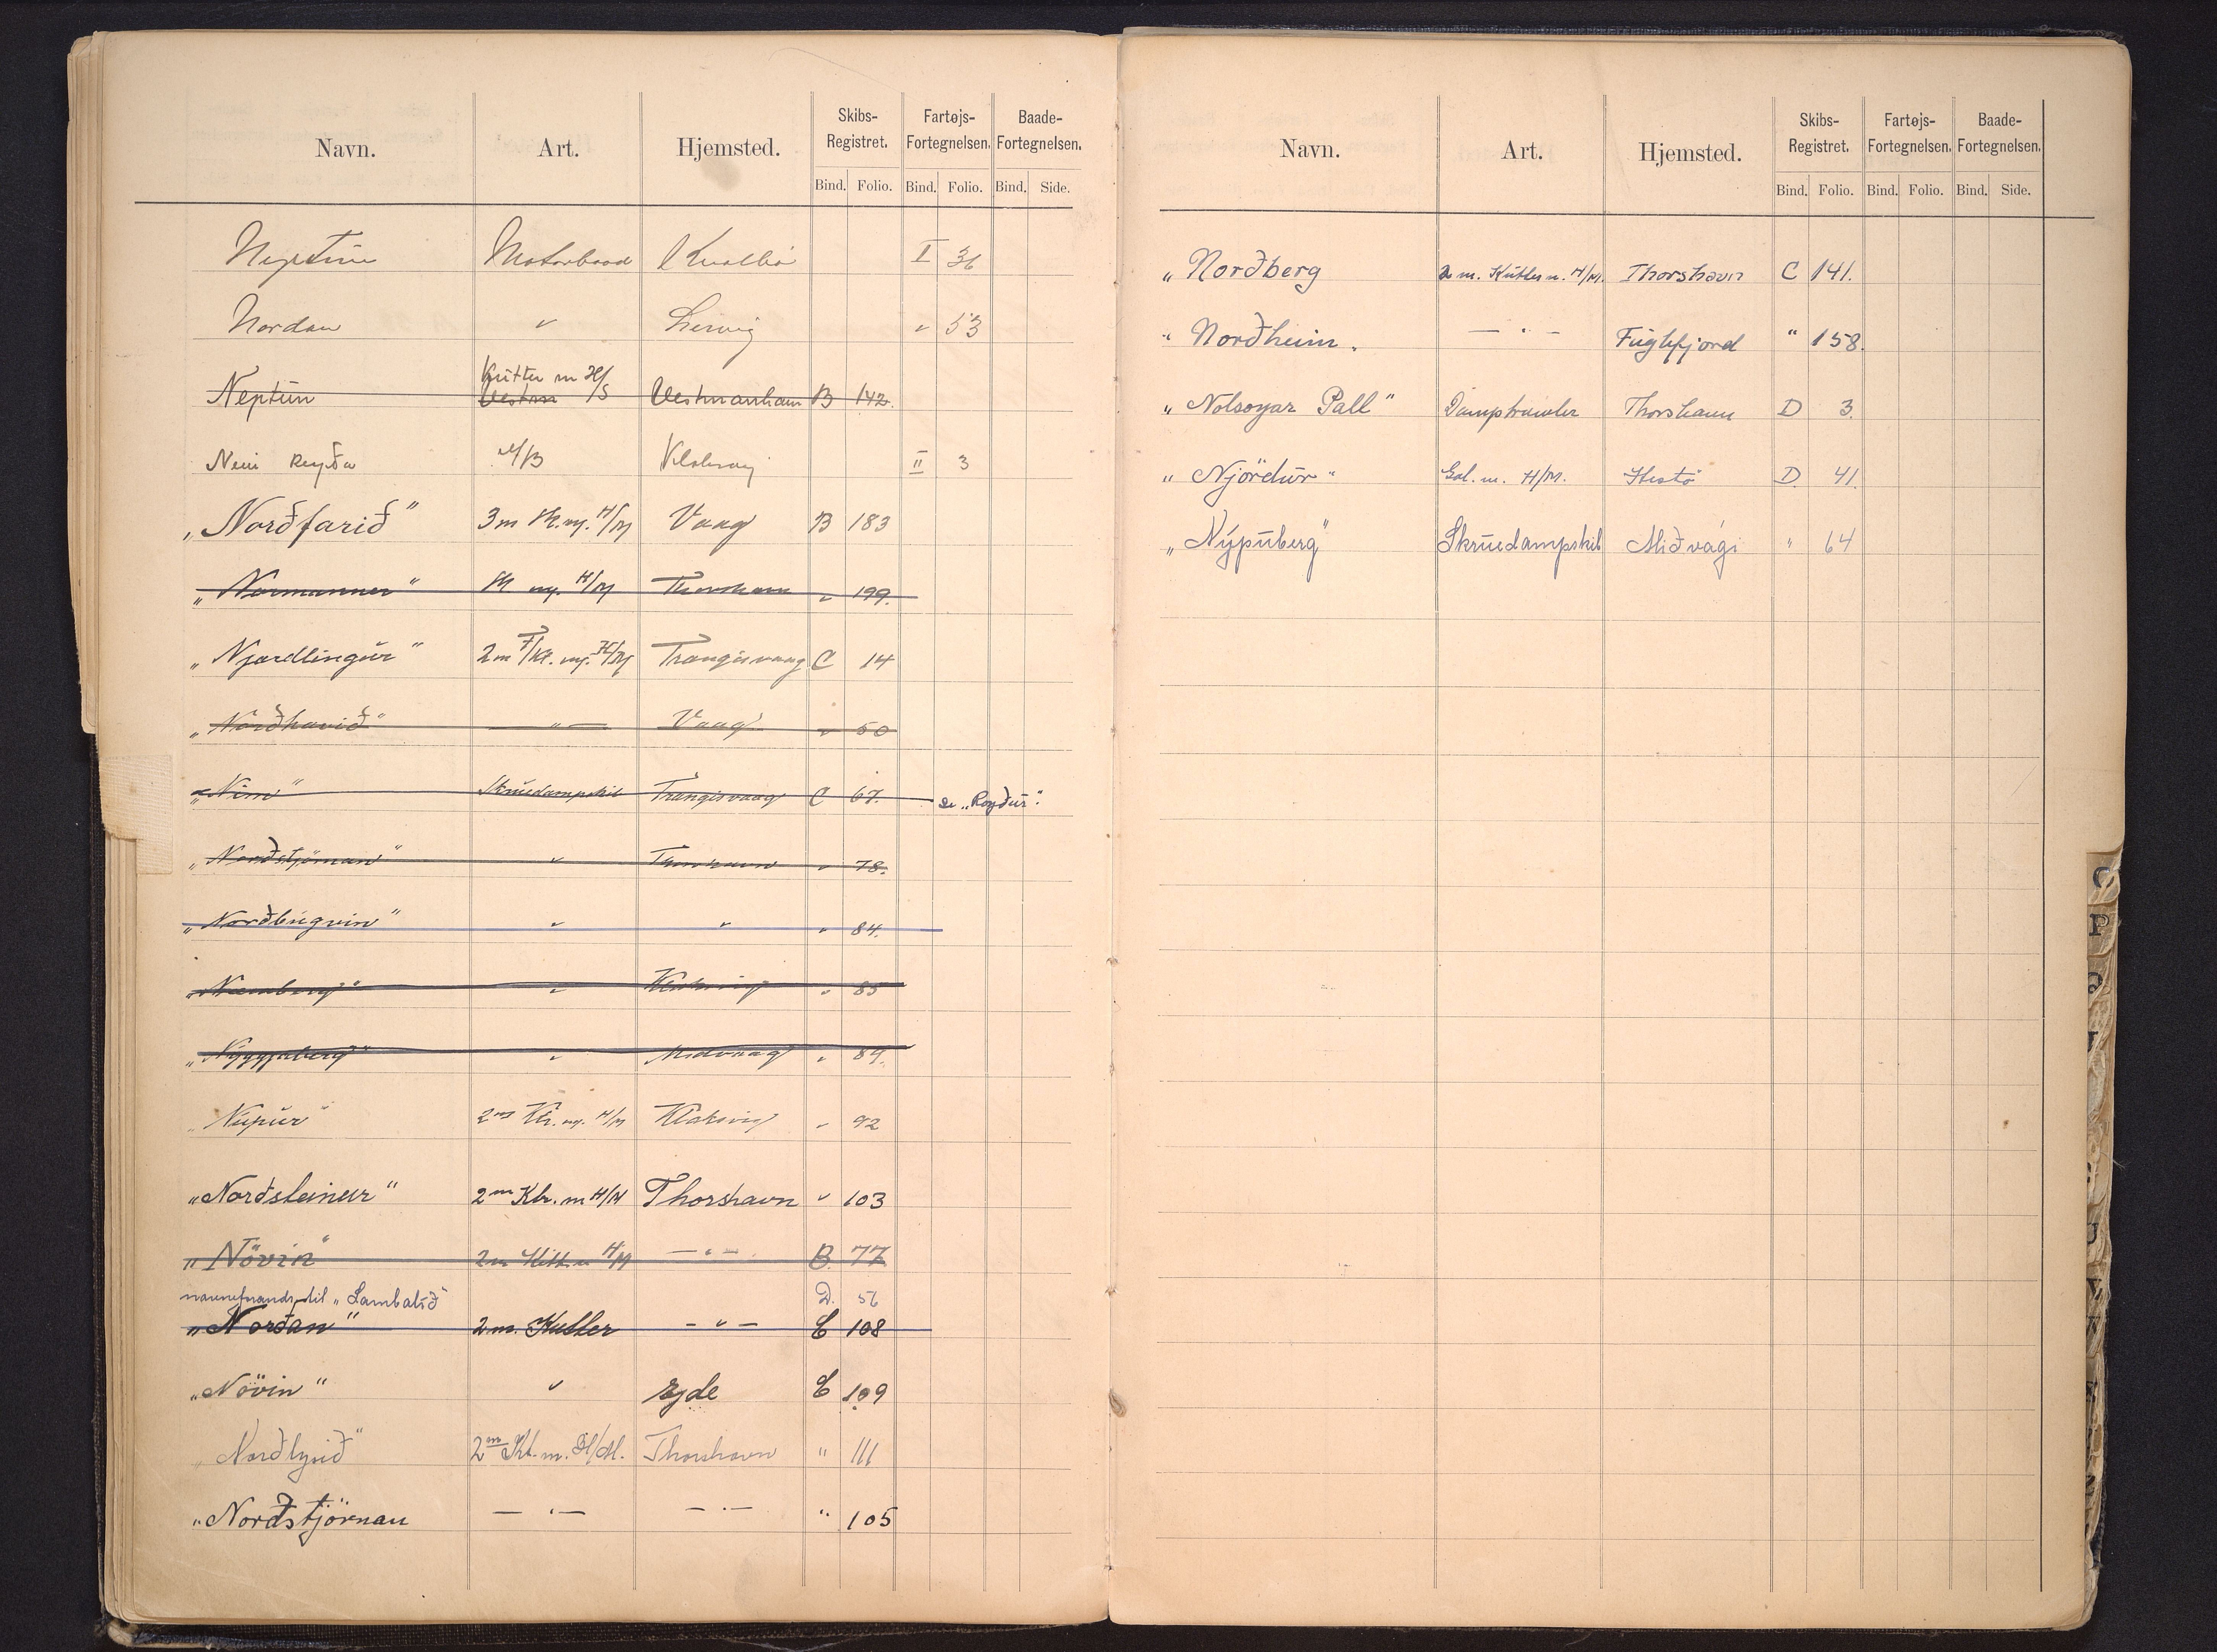 Navn. Art. Hjemsted. Skibs-Registret. Fartøjs-Fortegnelsen. Baade-Fortegnelsen.
Bind. Folio. Bind. Folio. Bind. Side.
Neptun Motorbaad Kvalbø I 36
Nordan " Lervig " 53
Neptún Kutter m H/S Vestmanham B 142.
M/B Klaksvig II 3
„Norðfarið" 3m Sk. m. H/M Vaag B 183
„Normanner" Sk m. H/M Thorshavn " 199.
„Njardlingur" 2m F/Kt. m. H/M Trangisvaag C 14
„Norðhavið" — " — Vaag " 50
„Skruedampskib Trangisvaag C 67. se „Royðúr".
„Norðstjörnan" " Thorshavn " 78.
„Norðbúgvin" " " " 84.
" Klaksvig " 85
„Nýggjaberg" " Midvaag " 89.
„Núpur" 2m Ktr. m. H/M Klaksvig " 92
„Norðsteinur" 2m Ktr. m H/M Thorshavn " 103
„Növin" 2m Kutt. m H/M — " — B. 77
navneforandr. til „Lambalíð" D. 56
„Norðan" 2m. Kutter — " — C 108
„Növin" " Ejde C 109
„Norðlysið" 2m Kt. m. H/M. Thorshavn " 111
„Norðstjörnan — " — — " — " 105
Navn. Art. Hjemsted. Skibs-Registret. Fartøjs-Fortegnelsen. Baade-Fortegnelsen.
Bind. Folio. Bind. Folio. Bind. Side.
„Norðberg 2 m. Kutter m. H/M. Thorshavn C 141.
„Norðheim. — " — Fuglefjord " 158.
„Nolsoyar Pall" Damptrawler Thorshavn D 3.
„Njördur" Gal. m. H/M. Hestø D. 41.
„Nýpuberg" Skruedampskib Miðvági " 64
O
P